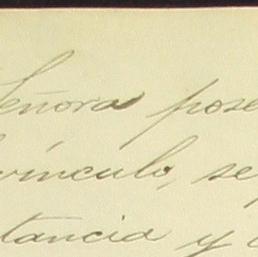 Señora pose
vínculo, se
tancia y